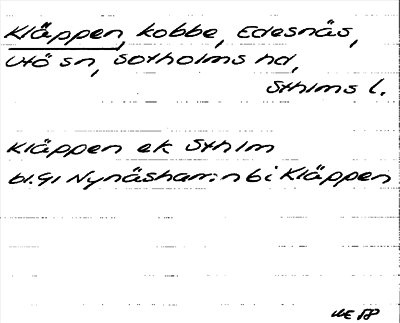 Kläppen, kobbe, Edesnäs,
Utö sn, Sotholms hd,
Sthlms l.
Kläppen ek Sthlm
bl. 91 Nynäshamn b i Kläppen